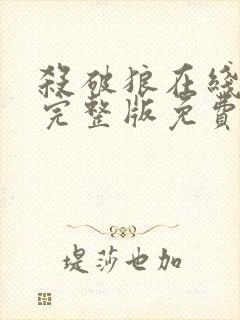 殺破狼在綫
完整版免費
堤莎也加